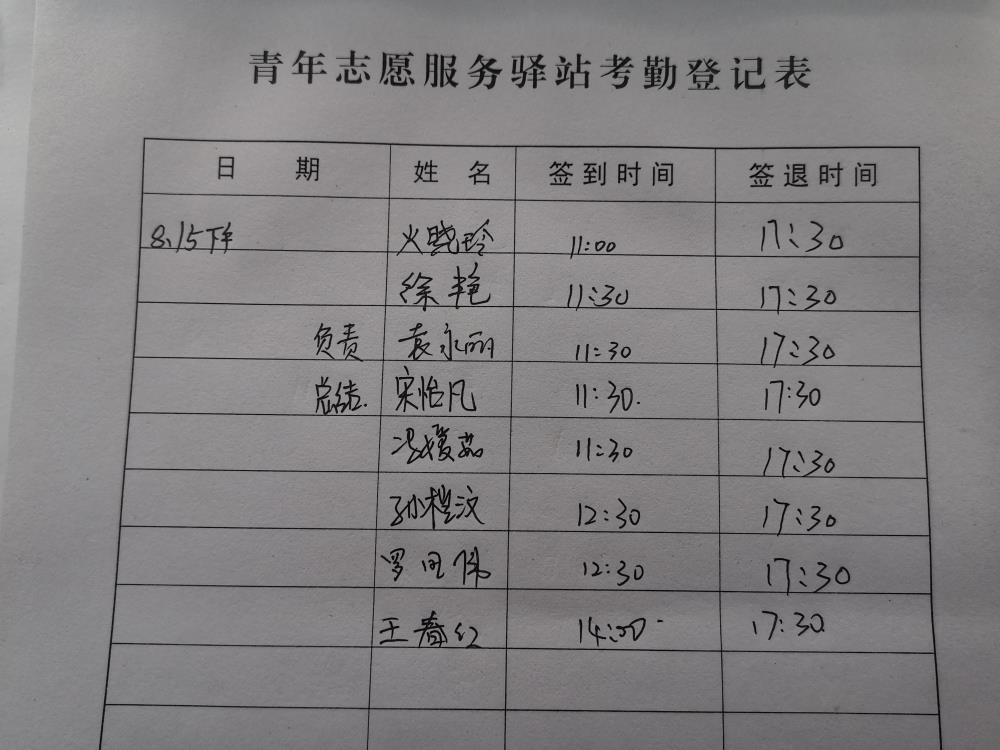 青年志愿服务驿站考勤登记表
日 期 姓 名 签到时间 签退时间
8.15下午 火晓玲 11:00 17:30
徐艳 11:30 17:30
负责 袁永丽 11:30 17:30
总结. 宋怡凡 11:30. 17:30
冯媛茹 11:30 17:30
孙 汶 12:30 17:30
罗 伟 12:30 17:30
王春红 14:00 17:30